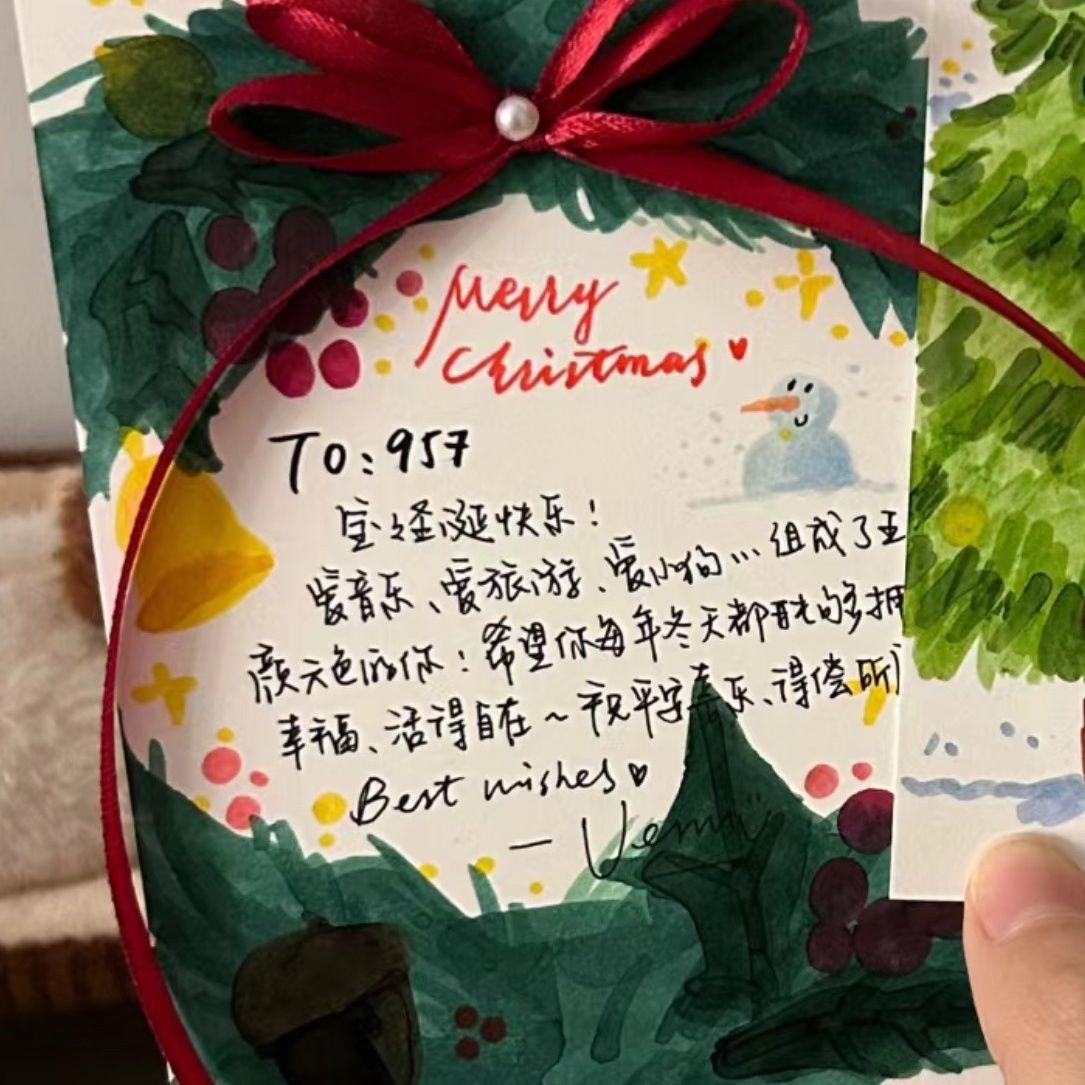 Merry
Christmas
TO: 957
宝圣诞快乐!
爱音乐、爱旅游、爱小狗…组成了五
颜六色的你!希望你每年冬天都能够拥
幸福、活得自在~祝平安喜乐、得偿所
Best wishes